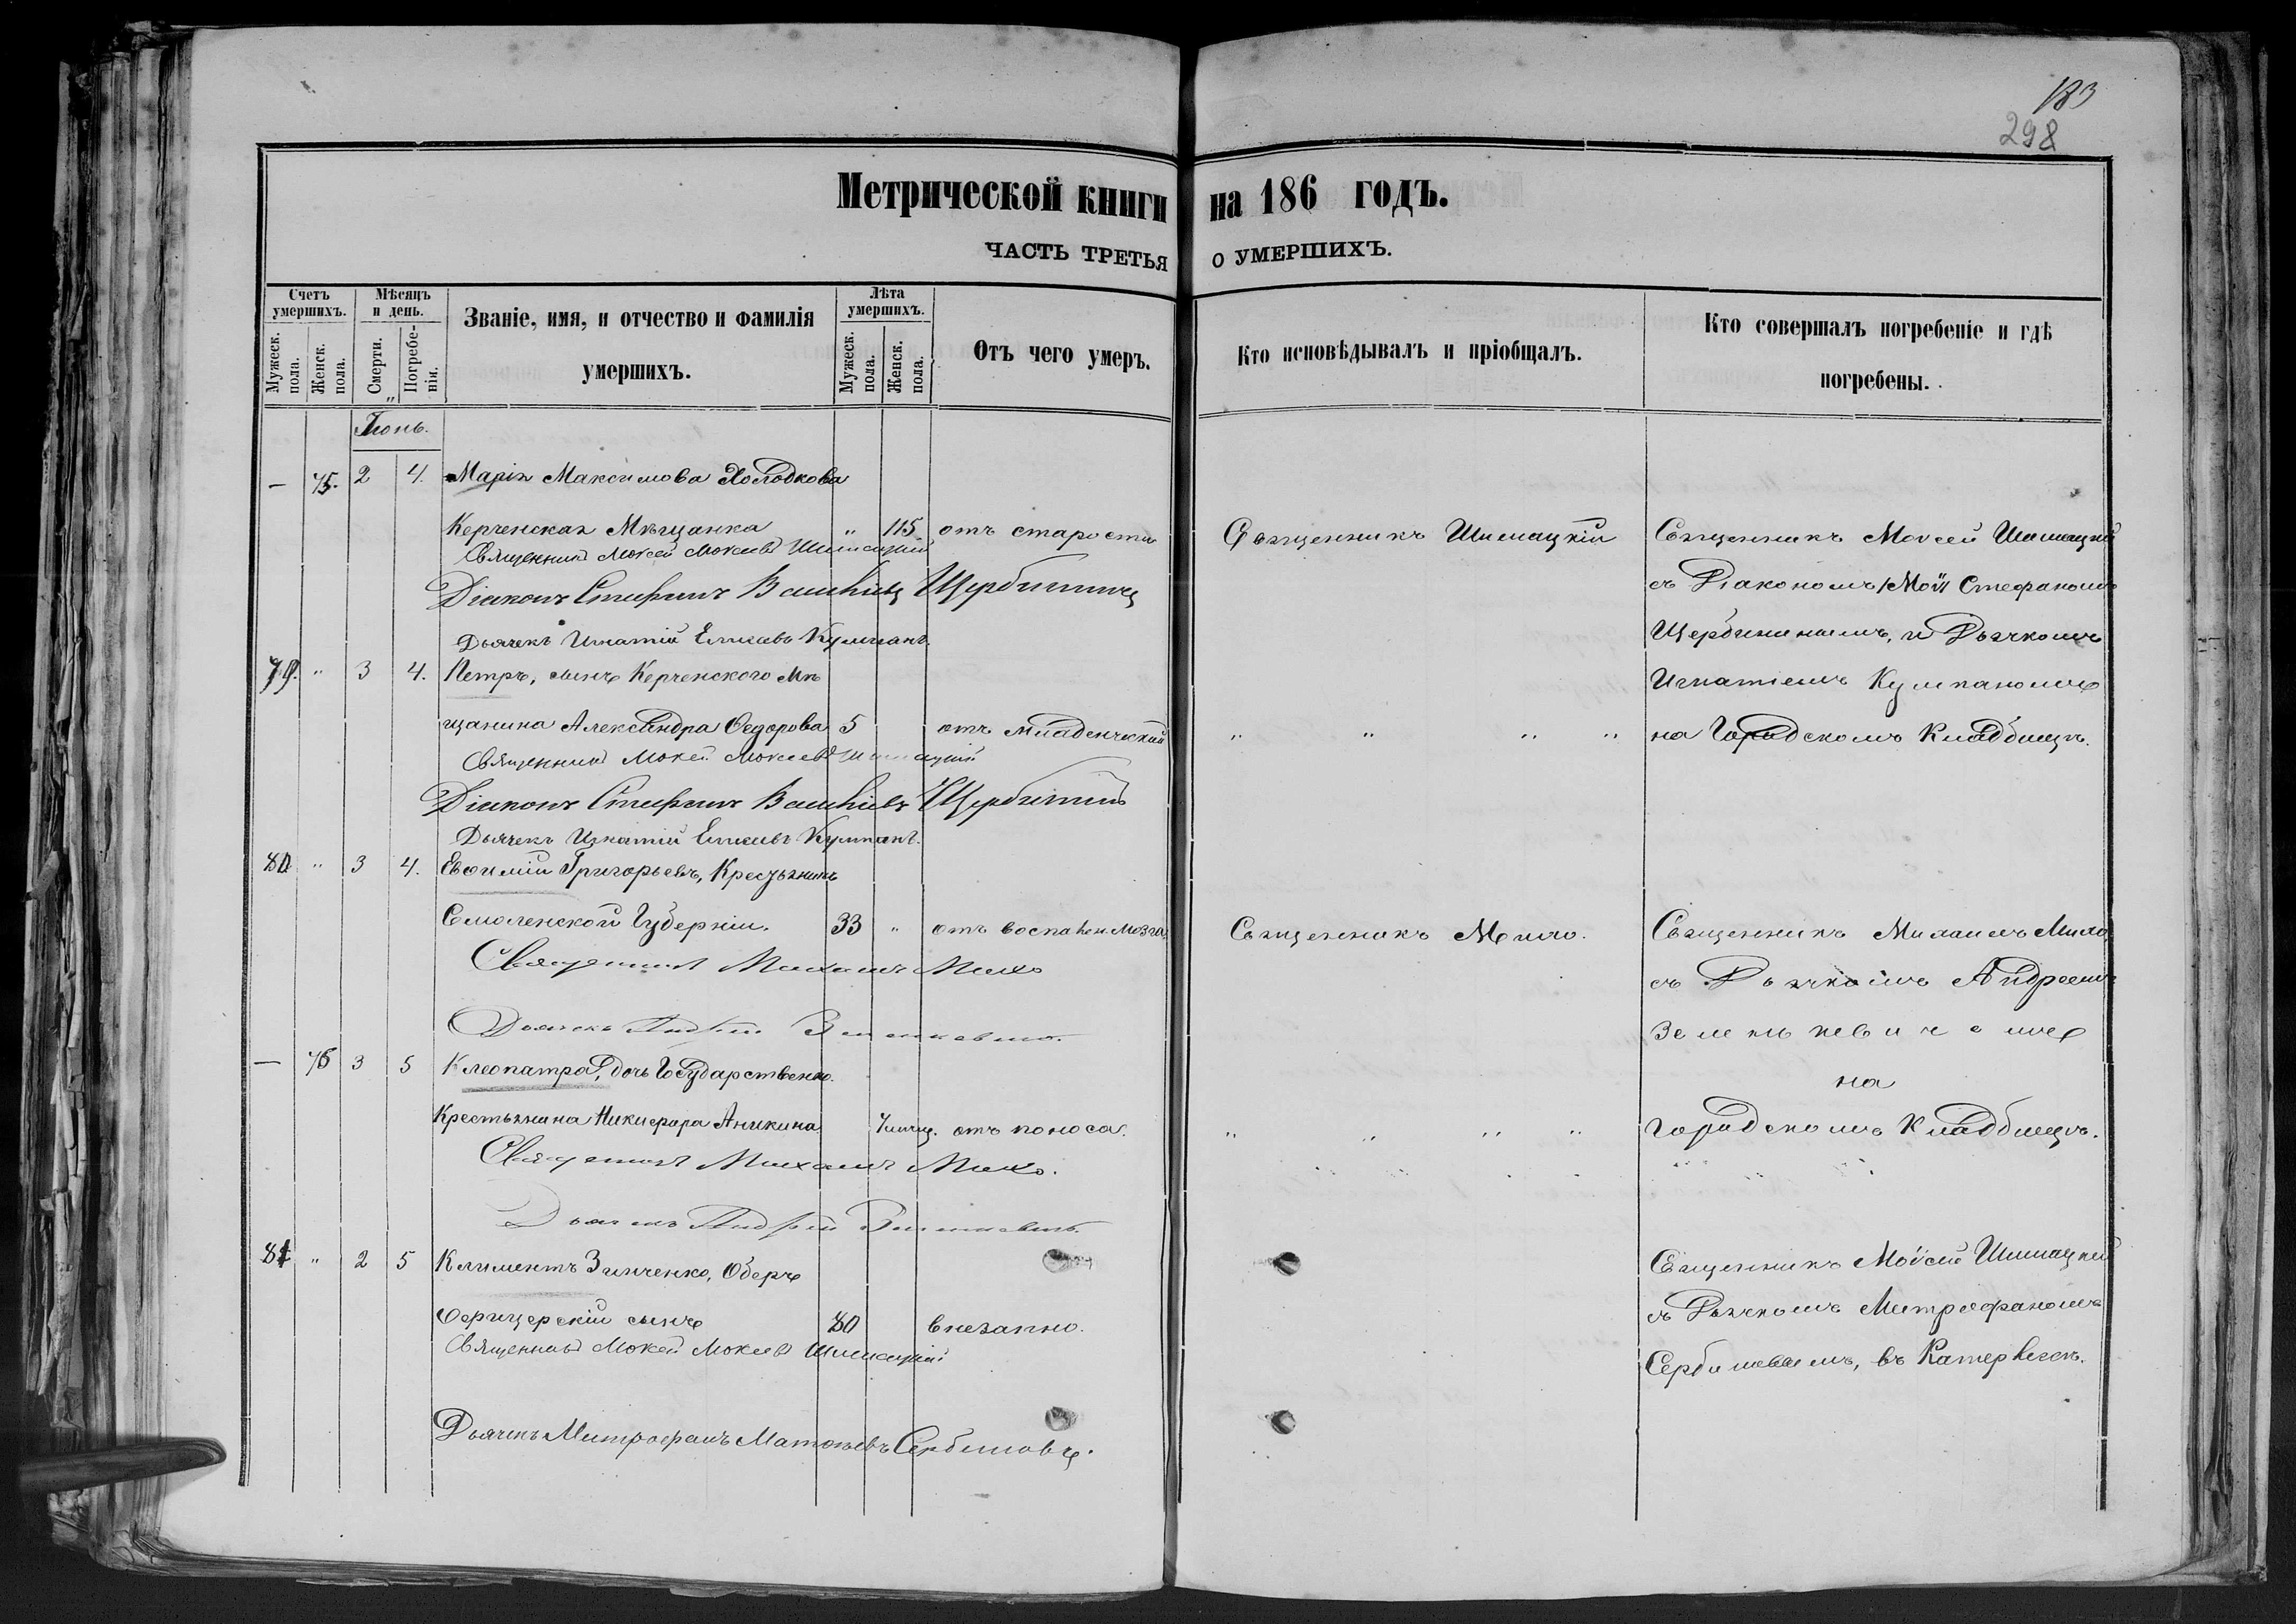 183
298
Метрической книги на 186 годъ.
ЧАСТЬ ТРЕТЬЯ О УМЕРШИХЪ.
Счетъ умершихъ.
Мужеск. пола.
Женск. пола.
Мѣсяцъ и день.
Смерти.
Погребенія.
Званіе, имя, и отчество и фамилія умершихъ.
Лѣта умершихъ.
Мужеск. пола.
Женск. пола.
Отъ чего умеръ.
Кто исповѣдывалъ и пріобщалъ.
Кто совершалъ погребеніе и гдѣ погребены.
Іюнь.
— 75. 2 4. Марія Максимова Холодкова
Керченская Мѣщанка " 115 отъ старости Священникъ Шимацкій Священникъ Мокей Шимацкій
Священникъ Мокей Мокіевъ Шимацкій
Діаконъ Стефанъ Щербининъ съ Діакономъ Стефаномъ
Дьячекъ Игнатій Кумпанъ. Щербининымъ, и Дьячкомъ
79. " 3 4. Петръ, сынъ Керченского Мѣ Игнатіемъ Кумпаномъ
щанина Александра Ѳедорова 5 отъ младенческой " " " " на Городскомъ Кладбищѣ.
Священникъ Мокей Мокіевъ Шимацкій
Діаконъ Стефанъ Щербининъ
Дьячекъ Игнатій Кумпанъ.
80 " 3 4. Евѳимій Григорьевъ, Крестьянинъ
Смоленской Губерніи. 33 " отъ воспален. мозга. Священникъ Михо. Священникъ Михаилъ Михо
Священникъ Михаилъ Михо съ Дьячкомъ Андреемъ
Дьячекъ Андрей Зеленкевичъ. Зеленкевичемъ
— 76 3 5 Клеопатра, дочь Государственн. на
Крестьянина Никифора Аникина. отъ поноса. " " " " городскомъ Кладбищѣ.
Священникъ Михаилъ Михо.
Дьячекъ Андрей Зеленкевичъ.
81 " 2 5 Климентъ Зинченко, Оберъ Священникъ Мокей Шимацкій
Офицерскій сынъ 80 внезапно. съ Дьячкомъ Митрофаномъ
Священникъ Мокей Мокіевъ Шимацкій Сербиновымъ, въ Катерлезѣ.
Дьячекъ Митрофанъ Матѳеевъ Сербиновъ.